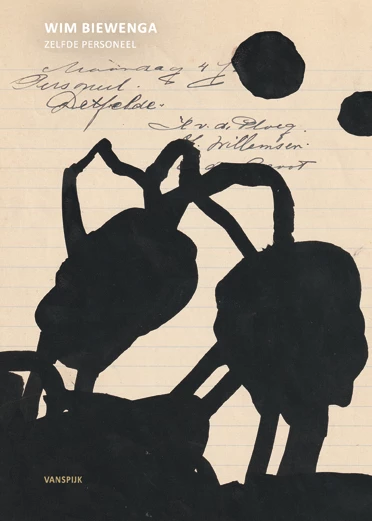 WIM BIEWENGA
ZELFDE PERSONEEL
Maandag 4
Personeel
Detfelde.
H. v. d. Ploeg.
Willemsen.
Groot
VANSPIJK